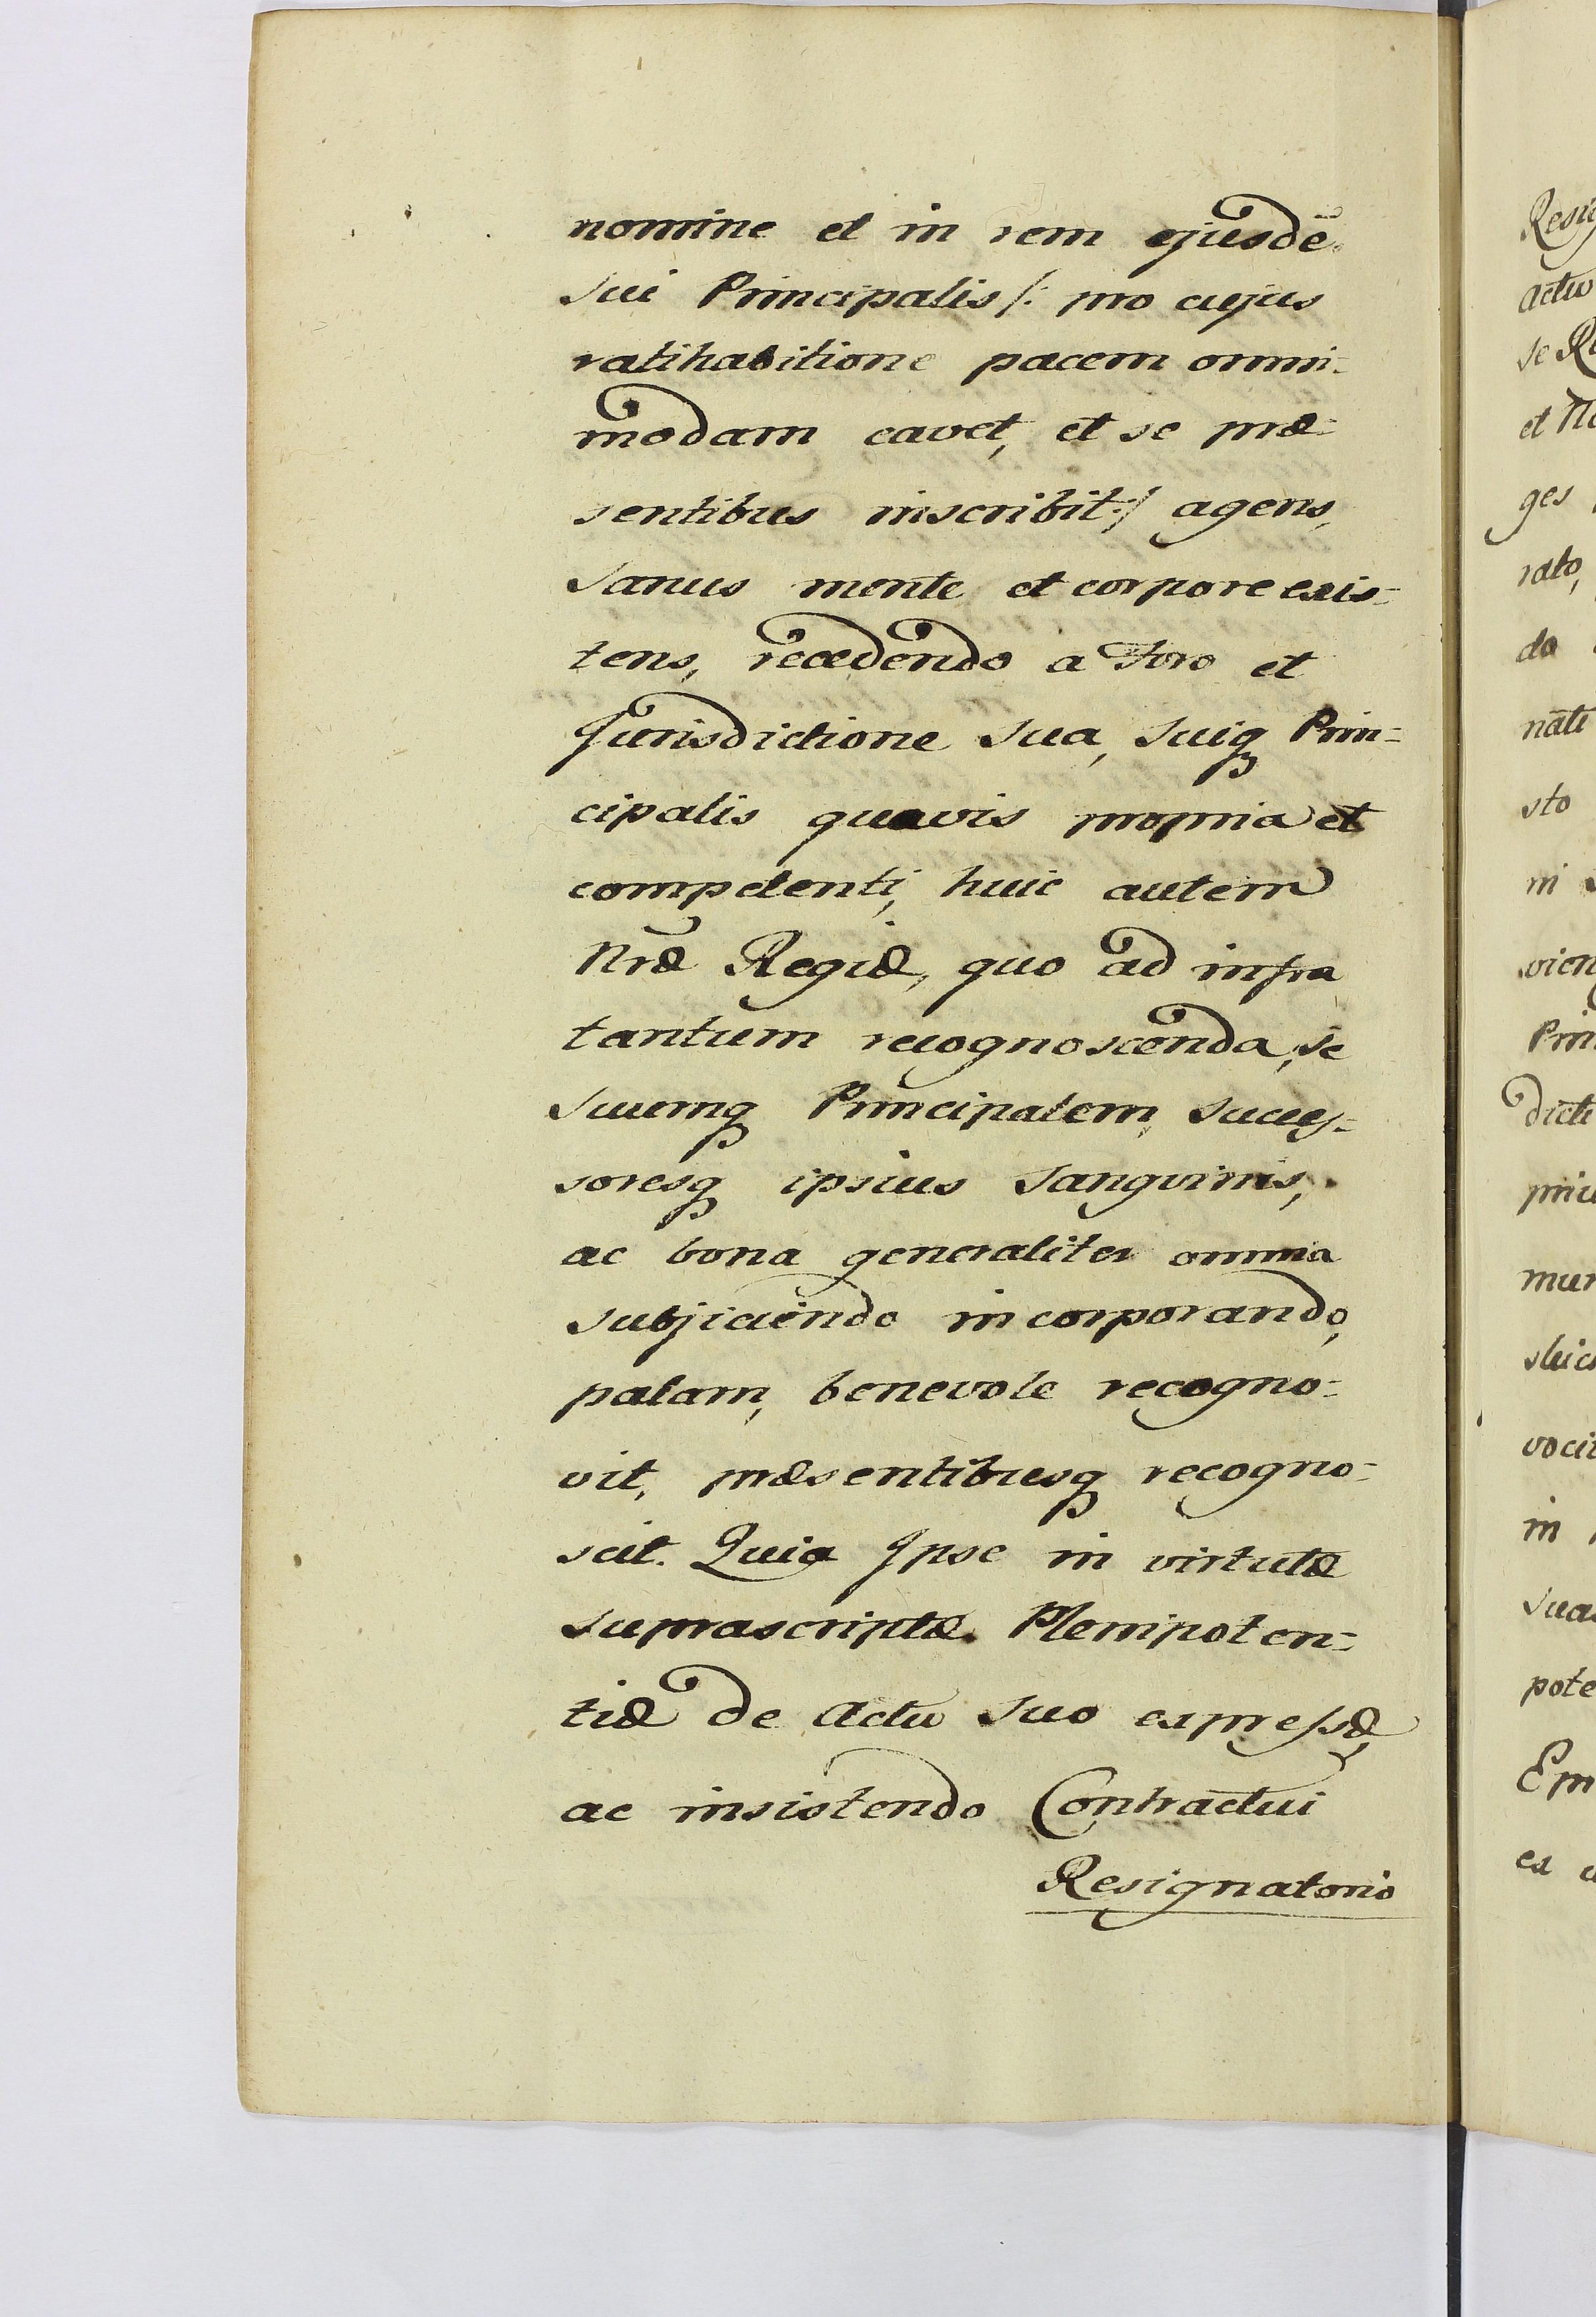 nomine et in rem ejusdē
sui Principalis /: pro cujus
ratihabitione pacem omni-
modam cavet, et se præ-
sentibus inscribit :/ agens,
Sanus mente et corpore exis-
tens, recedendo a Foro et
Jurisdictione sua, suiq Prin-
cipalis quavis propria et
competenti, huic autem
Nræ Regiæ, quo ad infra
tantum recognoscenda, se
suumq Principalem, succes-
soresq ipsius sangvinis,
ac bona generaliter omnia
subjiciendo incorporando,
palam, benevole recogno-
vit, præsentibusq recogno-
scit. Quia Ipse in virtutæ
suprascriptæ Plenipoten-
tiæ de Actu suo expressæ,
ac insistendo Contractui
Resignatorio
Resig
actu
se Re
et
ges
rato,
do
nāti
sto
ni
vien
Prin
dicti
priu
mun
voci
in
suas
pote
Em
ex